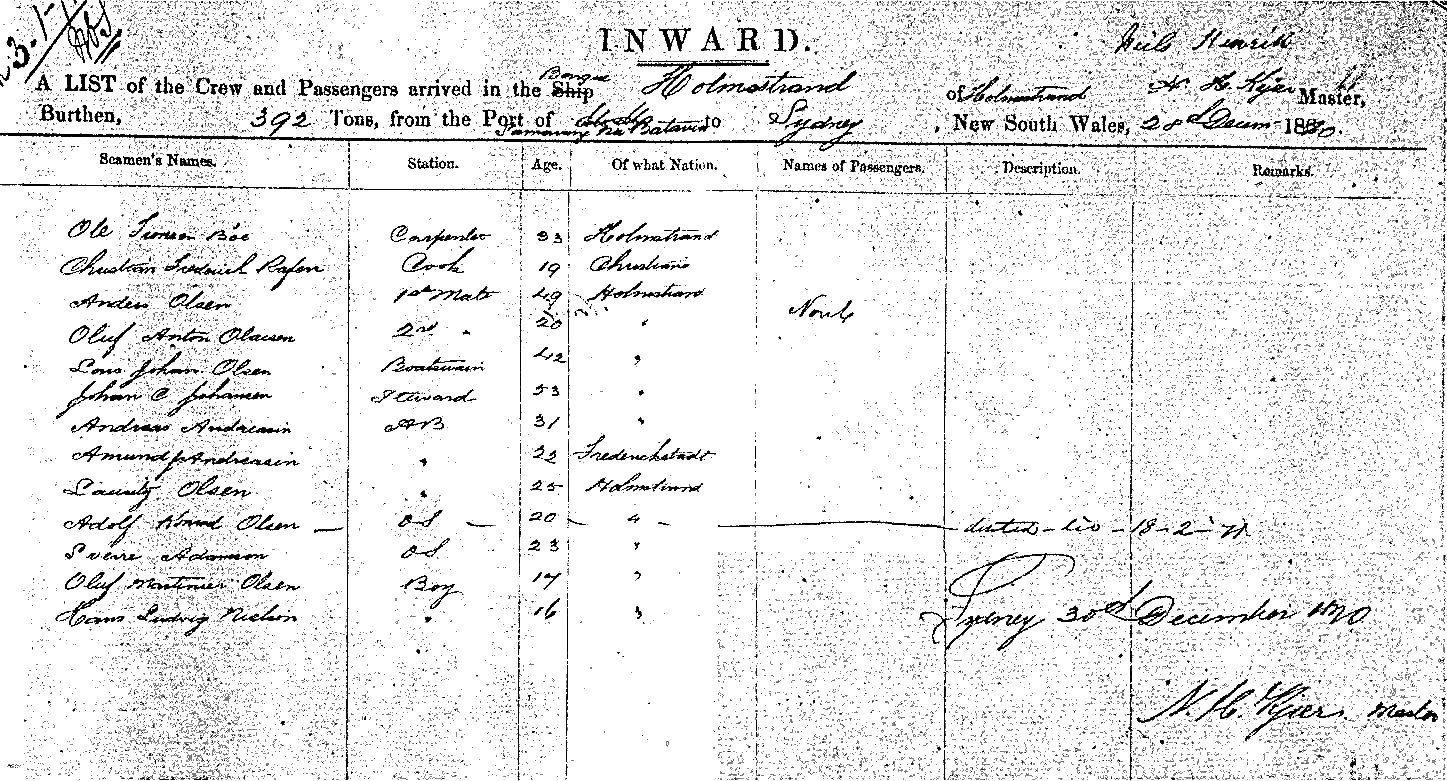 INWARD.
Niels Henrik
A LIST of the Crew and Passengers arrived in the Ship Barque Holmestrand of Holmestrand N H Kjær Master,
Burthen, 392 Tons, from the Port of Samarang via Batavia to Sydney, New South Wales, 28th Decem 1870.
Seamen's Names. Station. Age. Of what Nation. Names of Passengers. Description. Remarks.
Ole Bóe Carpenter 33 Holmstrand
Christian Frederick Cook 19 Christiania
Anders Olsen 1st Mate 49 Holmstrand
None
Oluf Anton Olausen 2nd " 20 "
Lars Johan Olsen Boatswain 42 "
Johan C Johansen Steward 53 "
Andreas Andreasin AB 31 "
Amund J Andreasin " 22 Frederickstadt
Lauritz Olsen " 25 Holmstrand
Adolf Konrad Olsen — OS — 20 — " — 18-2-71
Sverre Adamson OS 23 "
Oluf Martinius Olsen Boy 17 "
Hans Ludvig Nielson " 16 "
Sydney 30th December 1870
N. H. Kjær Master